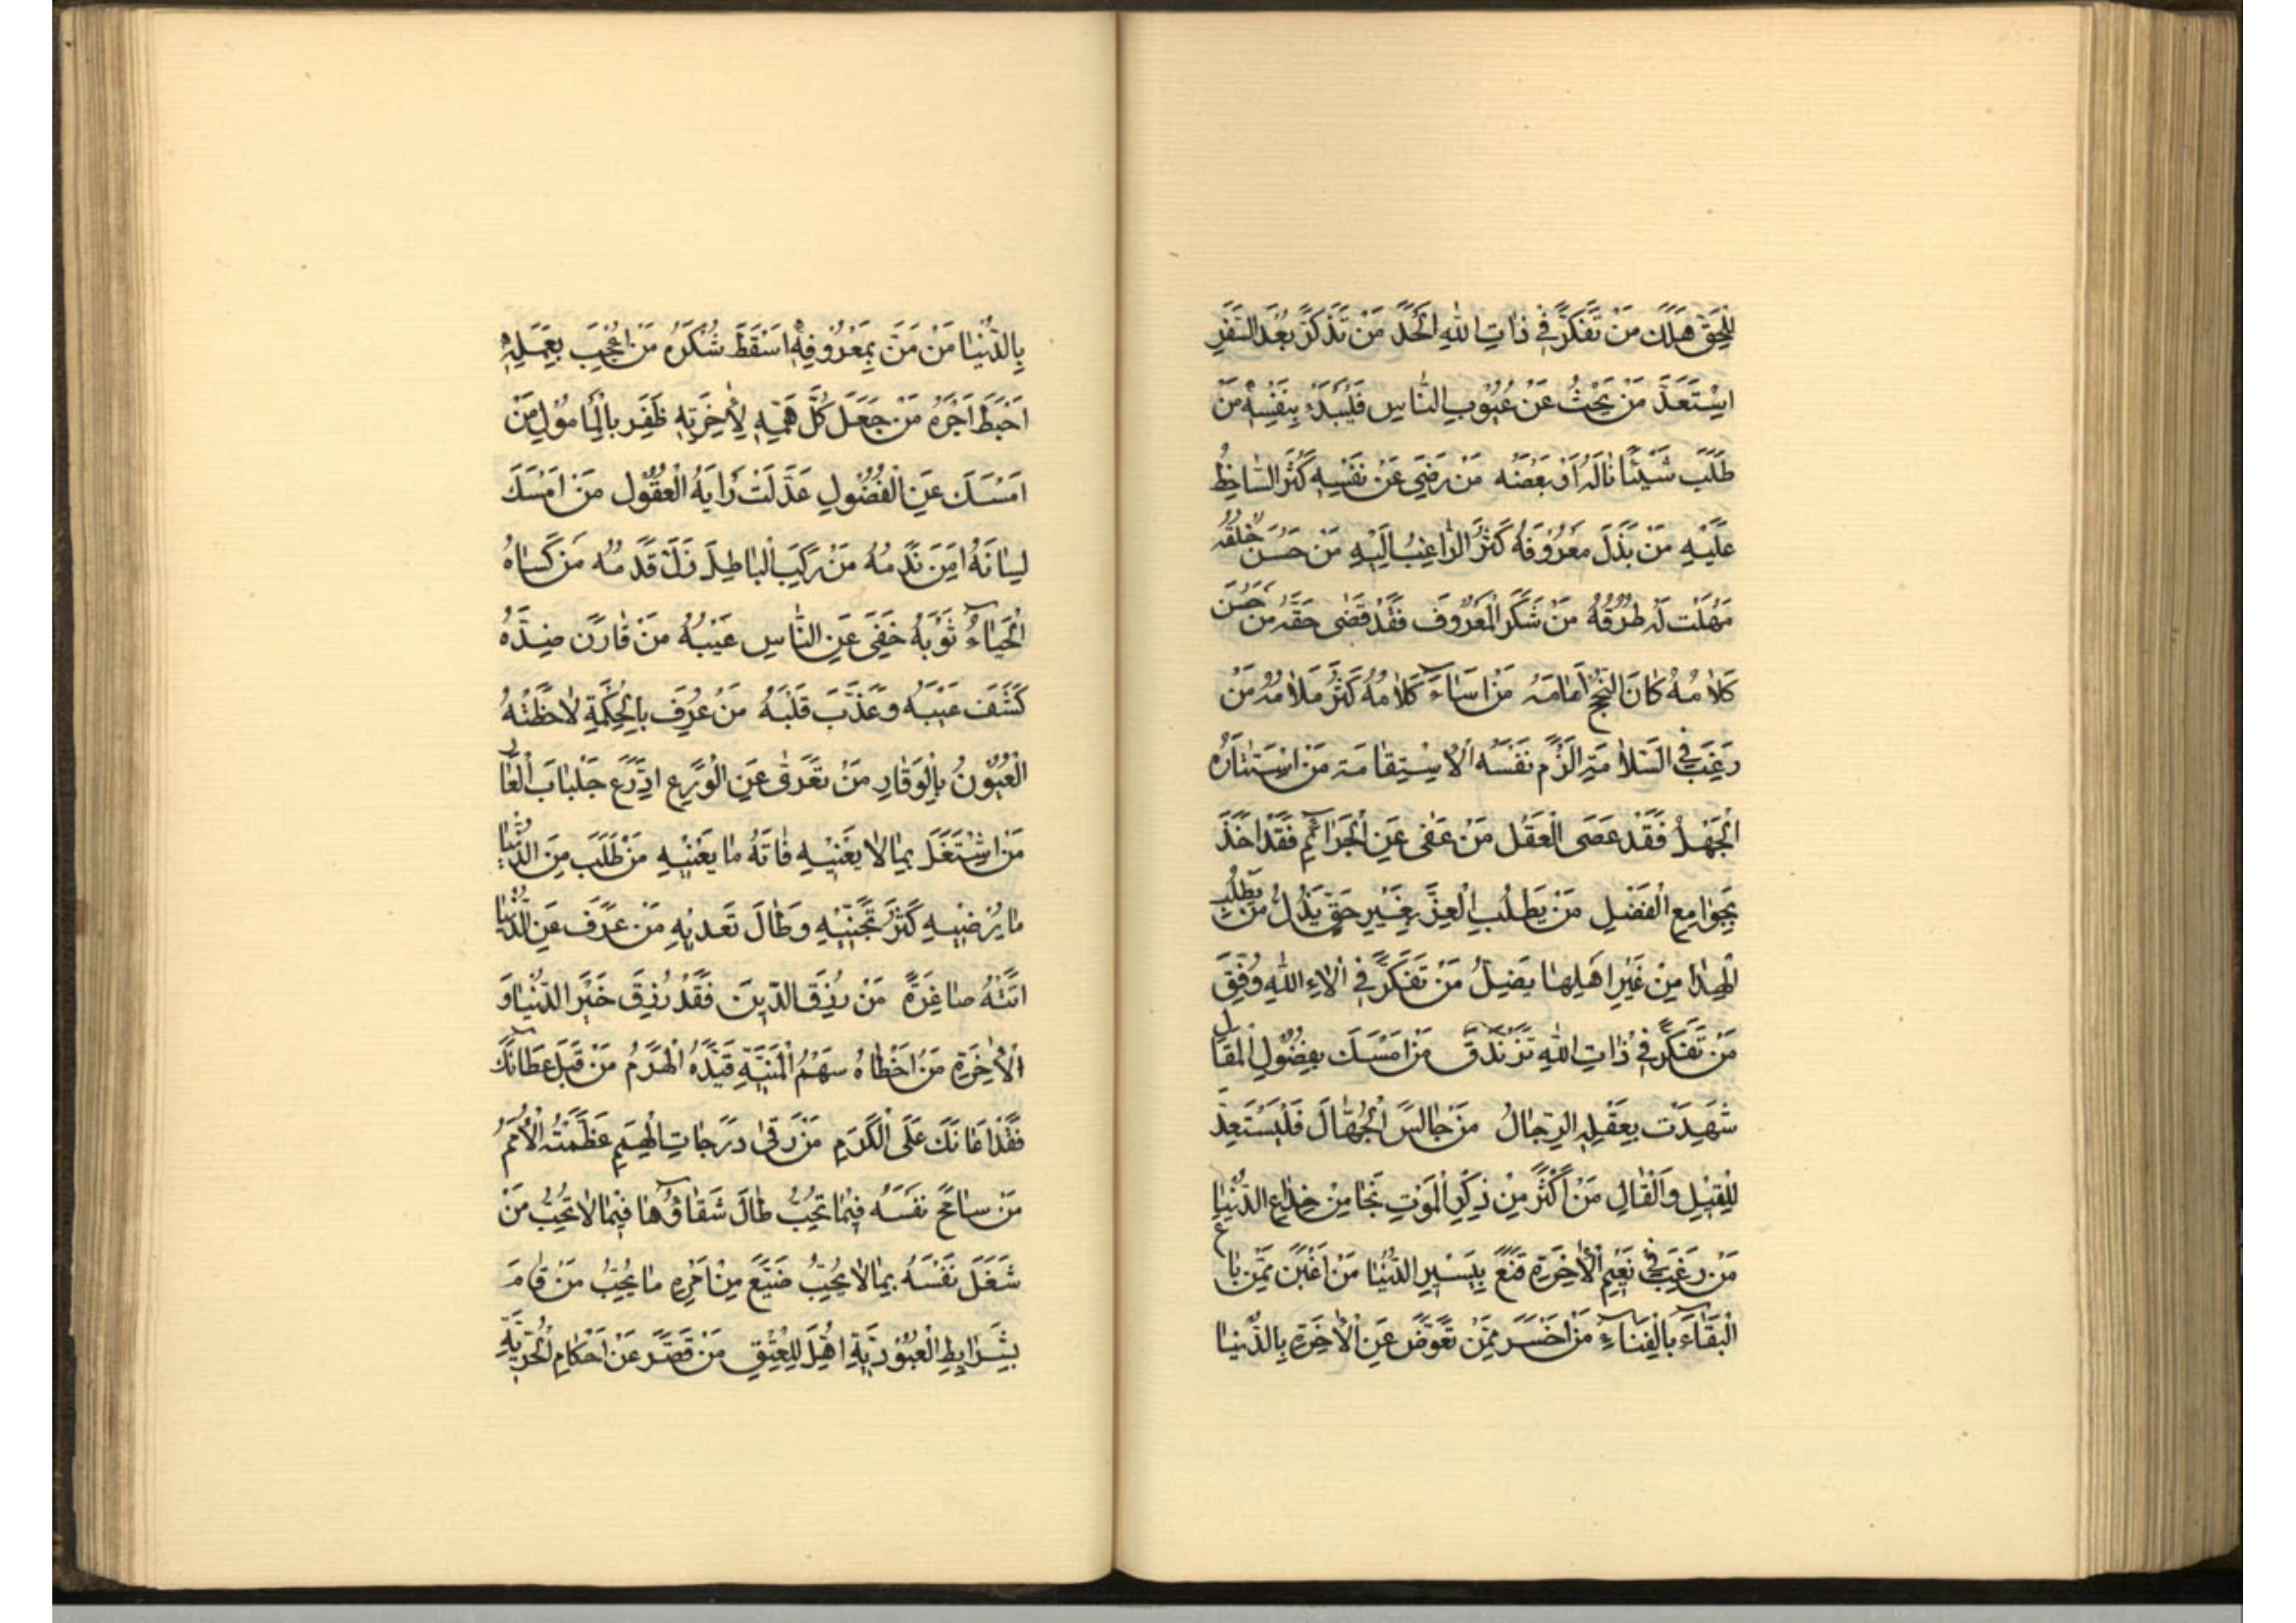 لِلْحَقِّ هَلَكَ مَنْ تَفَكَّرَ فِي ذَاتِ اللهِ اَلْحَدَ مَنْ تَذَكَّرَ بُعْدَ السَّفَرِ
اِسْتَعَدَّ مَنْ بَحَثَ عَنْ عُيُوبِ النَّاسِ فَلْيَبْدَءْ بِنَفْسِهِ مَنْ
طَلَبَ شَيْئًا نَالَهُ اَوْ بَعْضَهُ مَنْ رَضِيَ عَنْ نَفْسِهِ كَثُرَ السَّاخِطُ
عَلَيْهِ مَنْ بَذَلَ مَعْرُوفَهُ كَثُرَ الرَّاغِبُ اِلَيْهِ مَنْ حَسُنَ خُلُقُهُ
سَهُلَتْ لَهُ طُرُقُهُ مَنْ شَكَرَ الْمَعْرُوفَ فَقَدْ قَضٰى حَقَّهُ مَنْ حَسُنَ
كَلَامُهُ كَانَ النُّجْحُ اَمَامَهُ مَنْ اَسَاءَ كَلَامُهُ كَثُرَ مَلَامُهُ مَنْ
رَغِبَ فِي السَّلَامَةِ اَلْزَمَ نَفْسَهُ الْاِسْتِقَامَةَ مَنِ اسْتَشَارَهُ
الْجَهْلُ فَقَدْ عَصَى الْعَقْلَ مَنْ عَفٰى عَنِ الْجَرَائِمِ فَقَدْ اَخَذَ
بِجَوَامِعِ الْفَضْلِ مَنْ يَطْلُبِ الْعِزَّ بِغَيْرِ حَقٍّ يَذِلُّ مَنْ يَطْلُبِ
الْهِدَا مِنْ غَيْرِ اَهْلِهَا يَضِلُّ مَنْ تَفَكَّرَ فِي اٰلَاءِ اللهِ وُفِّقَ
مَنْ تَفَكَّرَ فِي ذَاتِ اللهِ تَزَنْدَقَ مَنْ اَمْسَكَ بِفُضُولِ الْمَقَالِ
شَهِدَتْ بِعَقْلِهِ الرِّجَالُ مَنْ جَالَسَ الْجُهَّالَ فَلْيَسْتَعِدَّ
لِلْقِيْلِ وَالْقَالِ مَنْ اَكْثَرَ مِنْ ذِكْرِ الْمَوْتِ نَجَا مِنْ خِدَاعِ الدُّنْيَا
مَنْ رَغِبَ فِي نَعِيْمِ الْاٰخِرَةِ قَنَعَ بِيَسِيْرِ الدُّنْيَا مَنْ اَغْبَنُ مِمَّنْ بَاعَ
الْبَقَاءَ بِالْفِنَاءِ مَنْ اَخْسَرُ مِمَّنْ تَعَوَّضَ عَنِ الْاٰخِرَةِ بِالدُّنْيَا
بِالدُّنْيَا مَنْ مَنَّ بِمَعْرُوفِهِ اَسْقَطَ شُكْرَهُ مَنْ اُعْجِبَ بِعَمَلِهِ
اَحْبَطَ اَجْرَهُ مَنْ جَعَلَ كُلَّ هَمِّهِ لِاٰخِرَتِهِ ظَفِرَ بِالْمَامُوْلِ مَنْ
اَمْسَكَ عَنِ الْفُضُولِ عَدَّلَتْ رَايَهُ الْعُقُوْلُ مَنْ اَمْسَكَ
لِسَانَهُ اَمِنَ نَدَمُهُ مَنْ رَكِبَ الْبَاطِلَ زَلَّ قَدَمُهُ مَنْ كَسَاهُ
الْحَيَاءُ ثَوْبَهُ خَفِيَ عَنِ النَّاسِ عَيْبُهُ مَنْ قَارَنَ ضِدَّهُ
كَشَفَ عَيْبَهُ وَعَذَّبَ قَلْبَهُ مَنْ عُرِفَ بِالْحِكْمَةِ لَاحَظَتْهُ
الْعُيُوْنُ بِالْوَقَارِ مَنْ تَعَرّٰى عَنِ الْوَرَعِ ادَّرَعَ جَلْبَابَ الْعَارِ
مَنِ اشْتَغَلَ بِمَا لَا يَعْنِيْهِ فَاتَهُ مَا يَعْنِيْهِ مَنْ طَلَبَ مِنَ الدُّنْيَا
مَا يُرْضِيْهِ كَثُرَ تَجَنِّيْهِ وَطَالَ تَعَدِّيْهِ مَنْ عَزَفَ عَنِ الدُّنْيَا
اَتَتْهُ صَاغِرَةً مَنْ رُزِقَ الدِّيْنَ فَقَدْ رُزِقَ خَيْرَ الدُّنْيَا وَ
الْاٰخِرَةِ مَنْ اَخْطَاهُ سَهْمُ الْمَنِيَّةِ قَيَّدَهُ الْهَرَمُ مَنْ قَبِلَ عَطَائَكَ
فَقَدْ اَعَانَكَ عَلَى الْكَرَمِ مَنْ رَقٰى دَرَجَاتِ الْهِمَمِ عَظَّمَتْهُ الْاُمَمُ
مَنْ سَامَحَ نَفْسَهُ فِيْمَا تُحِبُّ طَالَ شَقَاؤُهَا فِيْمَا لَا تُحِبُّ مَنْ
شَغَلَ نَفْسَهُ بِمَا لَا يُحِبُّ ضَيَّعَ مِنْ اَمْرِهِ مَا يُحِبُّ مَنْ قَامَ
بِشَرَايِطِ الْعُبُوْدِيَّةِ اُهِّلَ لِلْعِتْقِ مَنْ قَصَّرَ عَنْ اَحْكَامِ الْحُرِّيَّةِ